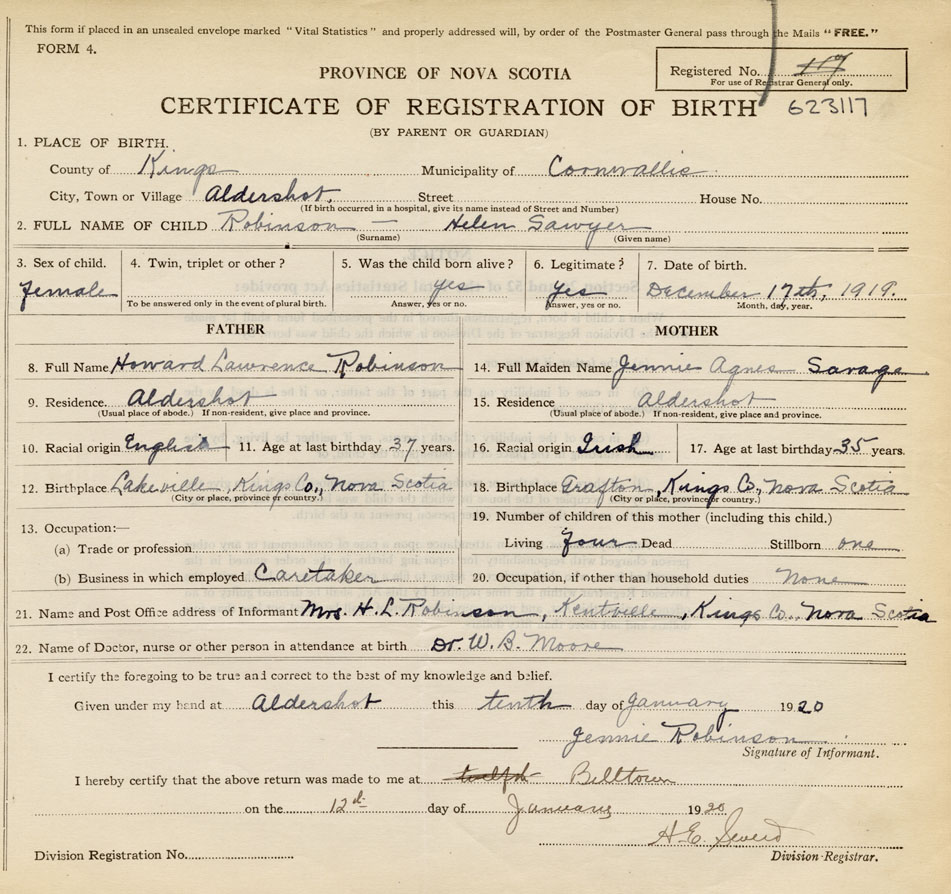 This form if placed in an unsealed envelope marked "Vital Statistics" and properly addressed will, by order of the Postmaster General pass through the Mails "FREE."
FORM 4.
Registered No. 117
For use of Registrar General only.
PROVINCE OF NOVA SCOTIA
CERTIFICATE OF REGISTRATION OF BIRTH 623117
(BY PARENT OR GUARDIAN)
1. PLACE OF BIRTH.
County of Kings Municipality of Cornwallis
City, Town or Village Aldershot, Street House No.
(If birth occurred in a hospital, give its name instead of Street and Number)
2. FULL NAME OF CHILD Robinson — Helen Sawyer
(Surname) (Given name)
3. Sex of child. 4. Twin, triplet or other? 5. Was the child born alive? 6. Legitimate? 7. Date of birth.
female yes Yes December 17th, 1919.
To be answered only in the event of plural birth. Answer, yes or no. Answer, yes or no. Month, day, year.
FATHER MOTHER
8. Full Name Howard Lawrence Robinson 14. Full Maiden Name Jennie Agnes Savage
9. Residence. Aldershot 15. Residence Aldershot
(Usual place of abode.) If non-resident, give place and province. (Usual place of abode.) If non-resident, give place and province.
10. Racial origin English 11. Age at last birthday 37 years. 16. Racial origin Irish 17. Age at last birthday 35 years.
12. Birthplace Lakeville, Kings Co., Nova Scotia 18. Birthplace Grafton, Kings Co., Nova Scotia
(City or place, province or country.) (City or place, province or country.)
13. Occupation:— 19. Number of children of this mother (including this child.)
(a) Trade or profession Living four Dead Stillborn one
(b) Business in which employed Caretaker 20. Occupation, if other than household duties None
21. Name and Post Office address of Informant Mrs. H. L. Robinson, Kentville, Kings Co., Nova Scotia
22. Name of Doctor, nurse or other person in attendance at birth Dr. W. B. Moore
I certify the foregoing to be true and correct to the best of my knowledge and belief.
Given under my hand at Aldershot this tenth day of January 1920
Jennie Robinson
Signature of Informant.
I hereby certify that the above return was made to me at twelfth Billtown
on the 12d day of January 1920
H.E.
Division Registration No. Division Registrar.